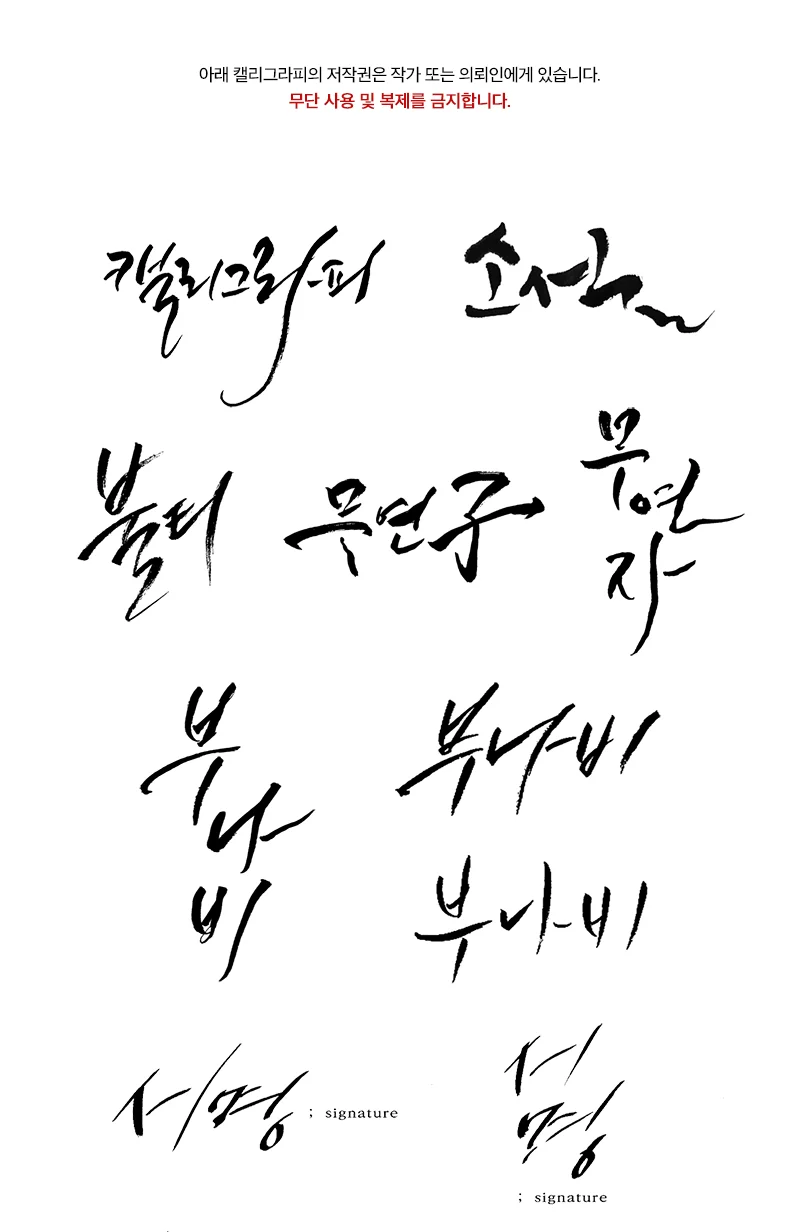 아래 캘리그라피의 저작권은 작가 또는 의뢰인에게 있습니다.
무단 사용 및 복제를 금지합니다.
캘리그라피
소설
불티
무연子
무연
자
부
나
비
부나비
부나비
서명 ; signature
서
명
; signature